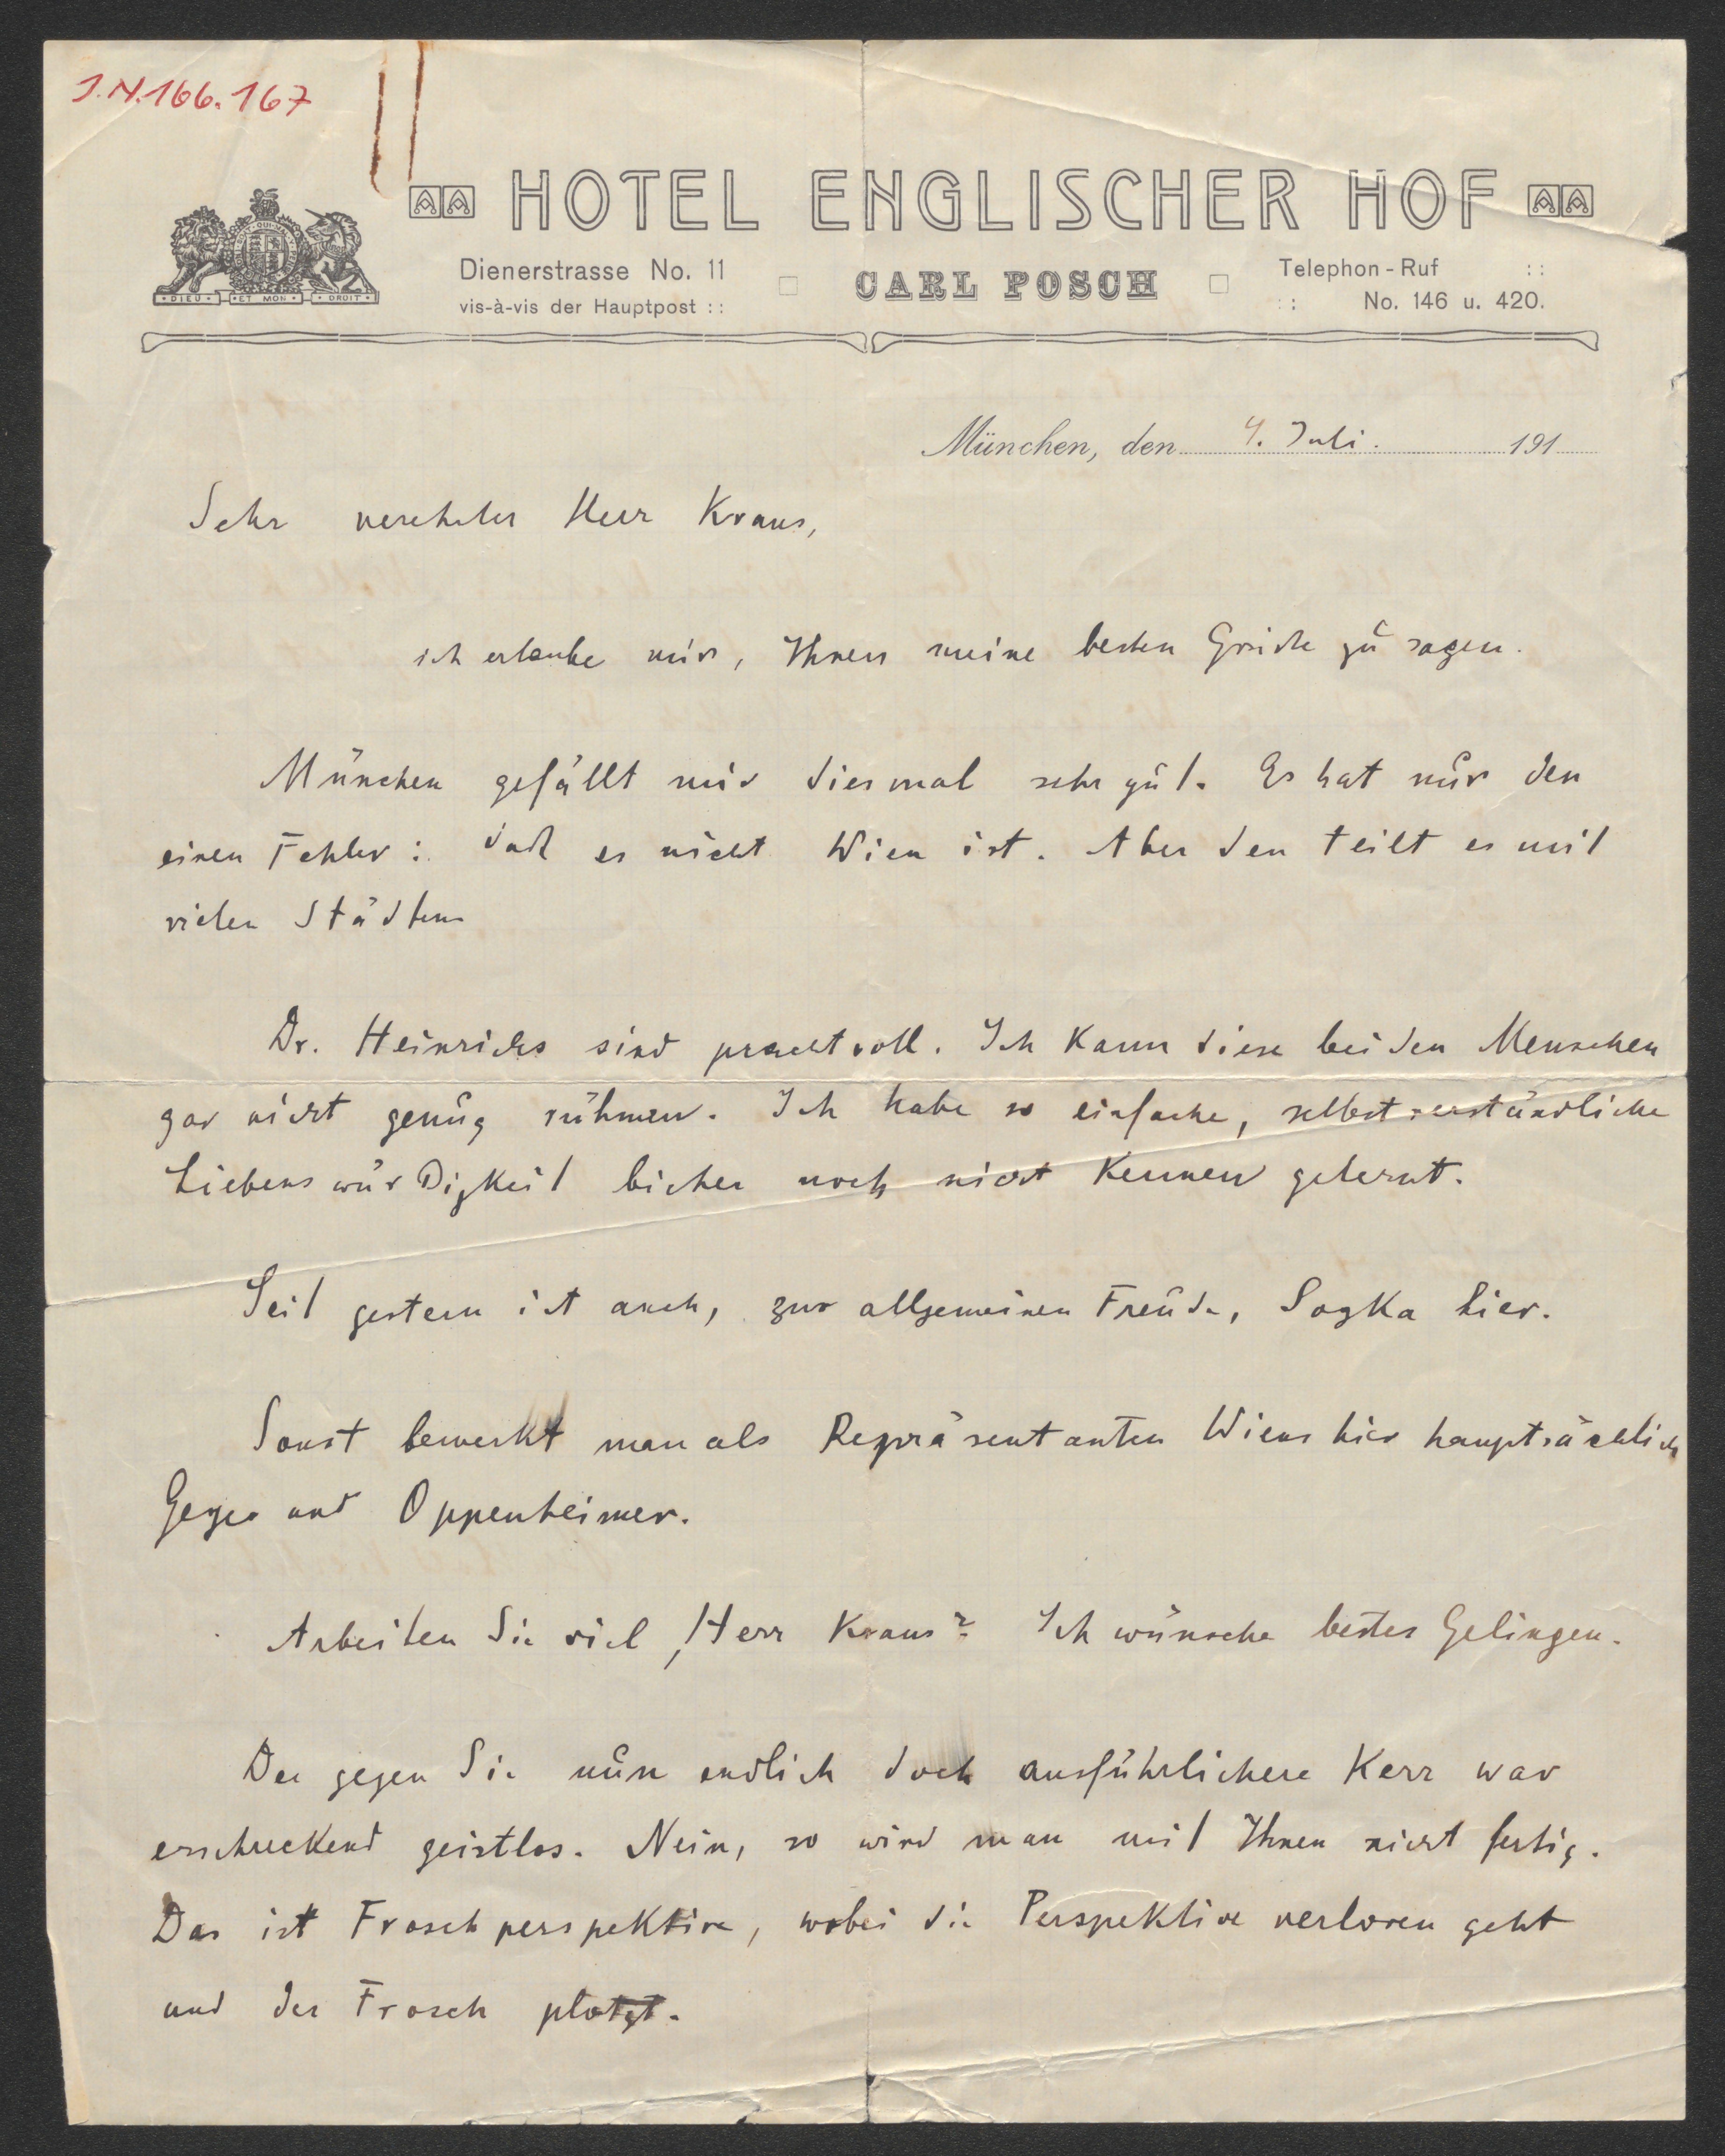 J.N. 166.167
HOTEL ENGLISCHER HOF
Dienerstrasse No. 11
vis-à-vis der Hauptpost ::
CARL POSCH
Telephon-Ruf ::
:: No. 146 u. 420.
DIEU ET MON DROIT
München, den 4. Juli. 191
Sehr verehrter Herr Kraus,
ich erlaube mir, Ihnen meine besten Grüße zu sagen.
München gefällt mir diesmal sehr gut. Es hat nur den
einen Fehler: daß es nicht Wien ist. Aber den teilt es mit
vielen Städten.
Dr. Heinrichs sind prachtvoll. Ich kann diese beiden Menschen
gar nicht genug rühmen. Ich habe so einfache, selbstverständliche
Liebenswürdigkeit bisher noch nicht kennen gelernt.
Seit gestern ist auch, zur allgemeinen Freude, Sogka hier.
Sonst bemerkt man als Repräsentanten Wiens hier hauptsächlich
Geyer und Oppenheimer.
Arbeiten Sie viel, Herr Kraus? Ich wünsche bestes Gelingen.
Der gegen Sie nun endlich doch ausführlichere Kerr war
erschreckend geistlos. Nein, so wird man mit Ihnen nicht fertig.
Das ist Froschperspektive, wobei die Perspektive verloren geht
und der Frosch platzt.